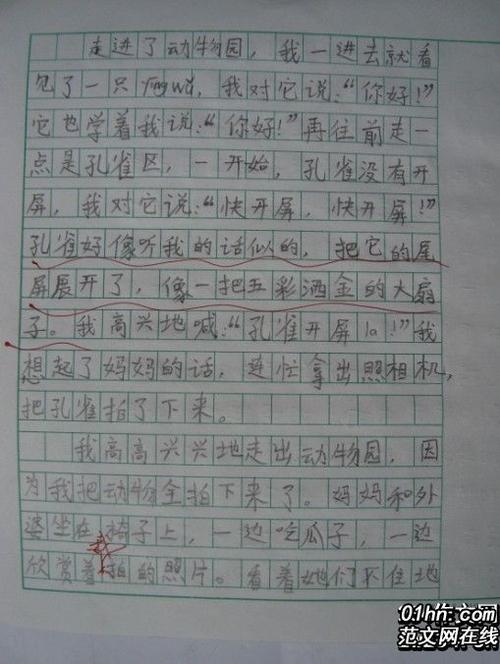 走进了动物园，我一进去就看
见了一只yingwǔ，我对它说：“你好！”
它也学着我说：“你好！”再往前走一
点是孔雀区，一开始，孔雀没有开
屏，我对它说：“快开屏，快开屏！”
孔雀好像听我的话似的，把它的尾
屏展开了，像一把五彩洒金的大扇
子。我高兴地喊：“孔雀开屏la！”我
想起了妈妈的话，连忙拿出照相机，
把孔雀拍了下来。
我高高兴兴地走出动物园，因
为我把动物全拍下来了。妈妈和外
婆坐在椅子上，一边吃瓜子，一边
欣赏着拍的照片。看着她们不住地
范文网在线